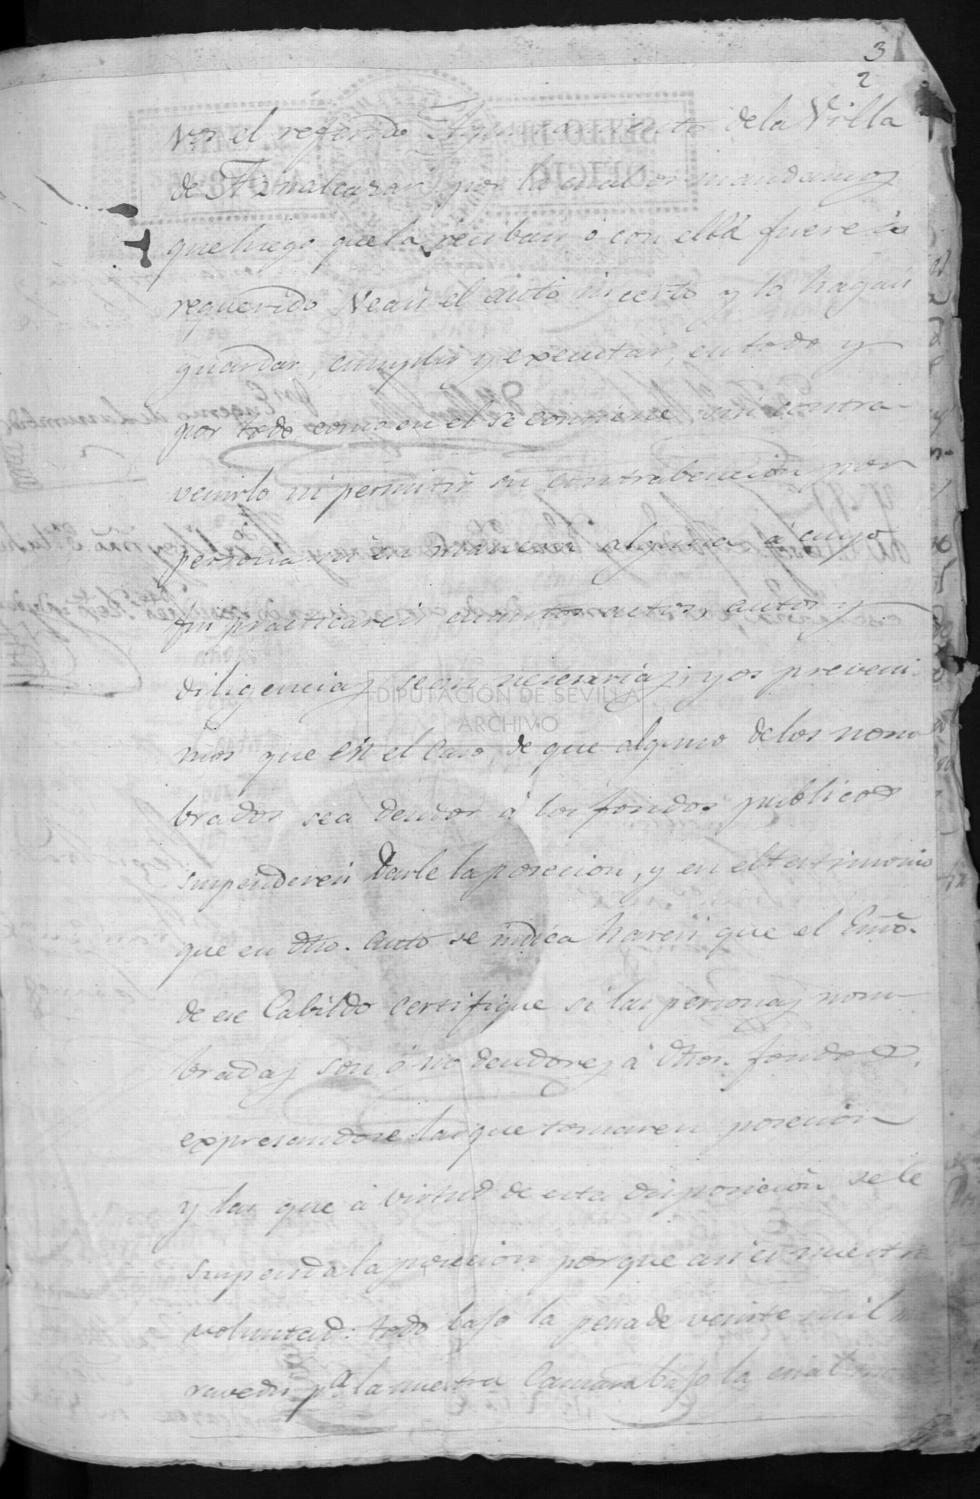 3
2
Vos el referido Ayuntamiento dela Villa
de Aznalcazar, por la cual os mandamos
que luego que la reciban ó con ella fuereis
requerido Veaís el auto incerto y lo hagaís
guardar, cumplir y executar, en todo y
por todo como en el se contiene, sin contra-
venirlo ni permitir su contrabencion por
persona ni en manera alguna á cuyo
fin practicareis cuantos autos y
diligencias sean nesesarias; y os preveni-
mos que en el caso de que alguno delos nom
brados sea deudor á los fondos publicos
suspendereis darle la posecion, y en el testimonio
que en dho. auto se indica hareis que el Esno.
de ese Cabildo certifique si las personas nom-
bradas son ó no deudores á dhos. fondos,
expresandose las que tomaren posecion
y las que á virtud de esta disposicion se le
suspenda la posecion porque asi es nuestra
voluntad: todo bajo la pena de veinte mil m
ravedis pa. la nuestra Camara bajo la cual
DIPUTACIÓN DE SEVILLA
ARCHIVO